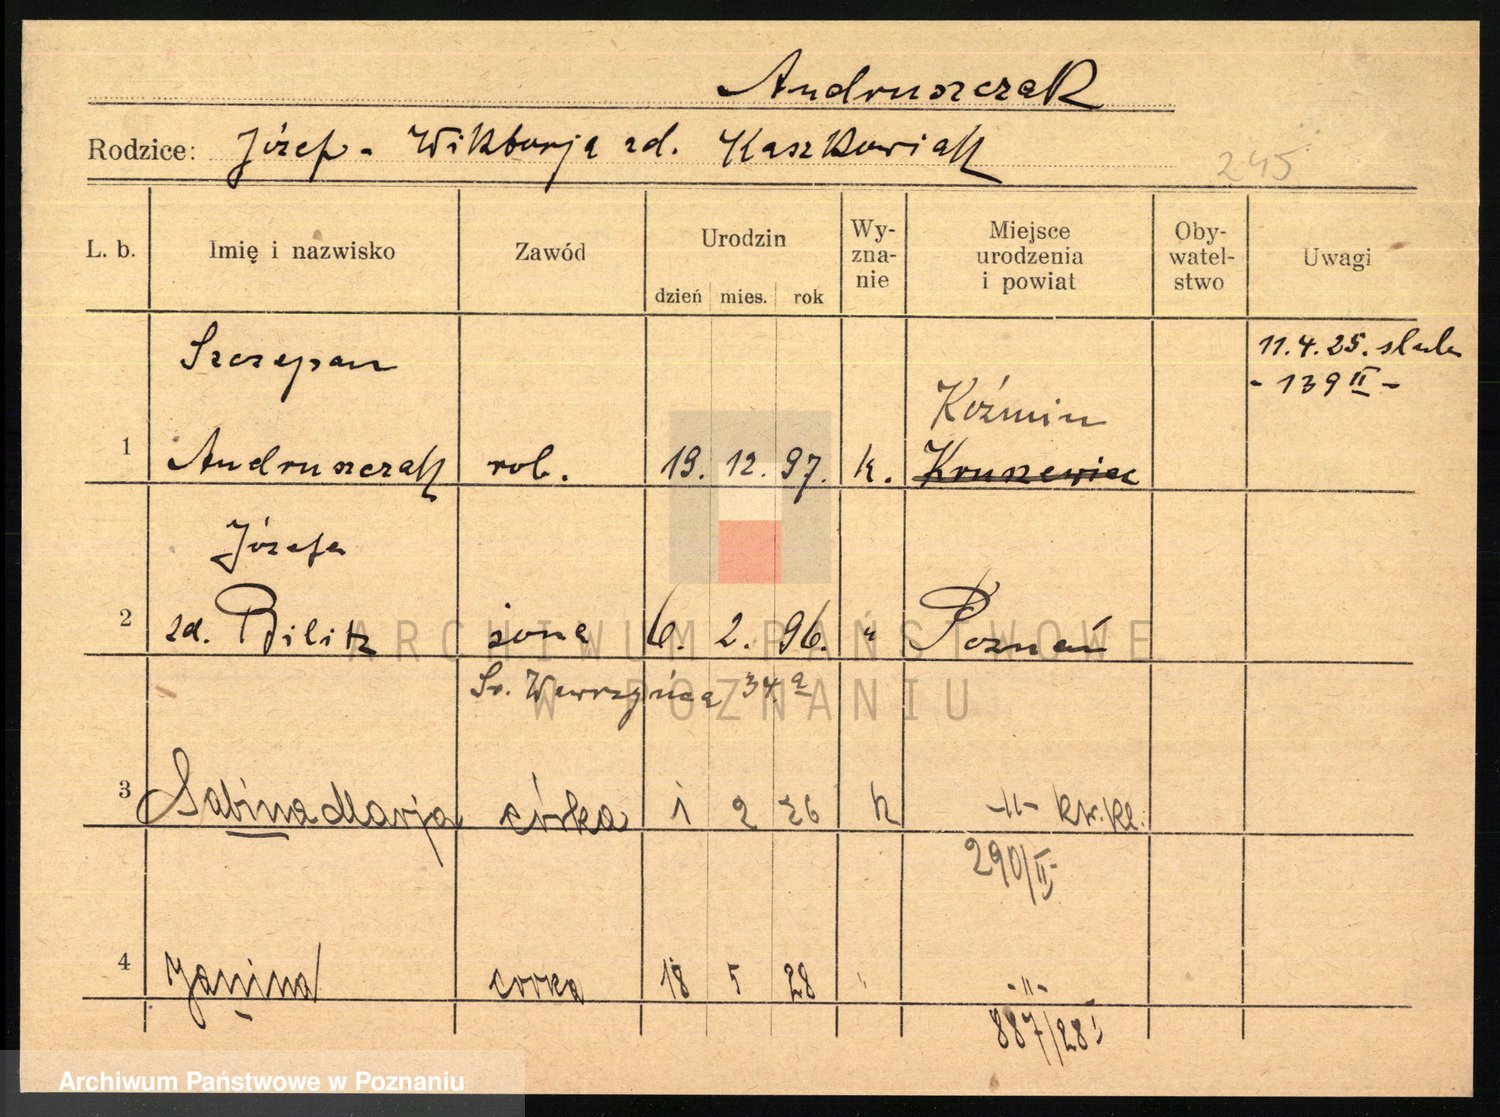 Andruszczak
Rodzice: Józef - Wiktorja zd. Kaszkowiak
245
L. b. Imię i nazwisko Zawód Urodzin dzień mies. rok Wy-zna-nie Miejsce urodzenia i powiat Oby-watel-stwo Uwagi
11.4.25.
Szczepan - 139 II -
Koźmin
1 Andruszczak rob. 19. 12. 97. k. Kruszewiec
Józefa
2 zd. Bilitz żona 6. 2. 96. " Poznań
ARCHIWUM PAŃSTWOWE
Św. Wawrzyńca 34 a
W POZNANIU
3 Sabina Marja córka 1 2 26 k -"- kr.kl.
290/II
4 Janina corka 18 5 28 " -"-
887/28
Archiwum Państwowe w Poznaniu